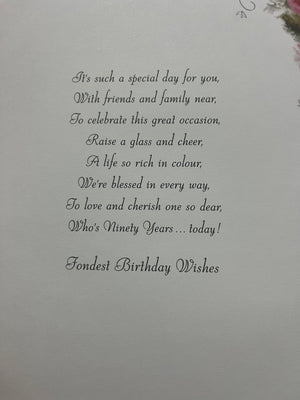 It's such a special day for you,
With friends and family near,
To celebrate this great occasion,
Raise a glass and cheer,
A life so rich in colour,
We're blessed in every way,
To love and cherish one so dear,
Who's Ninety Years... today!
Fondest Birthday Wishes